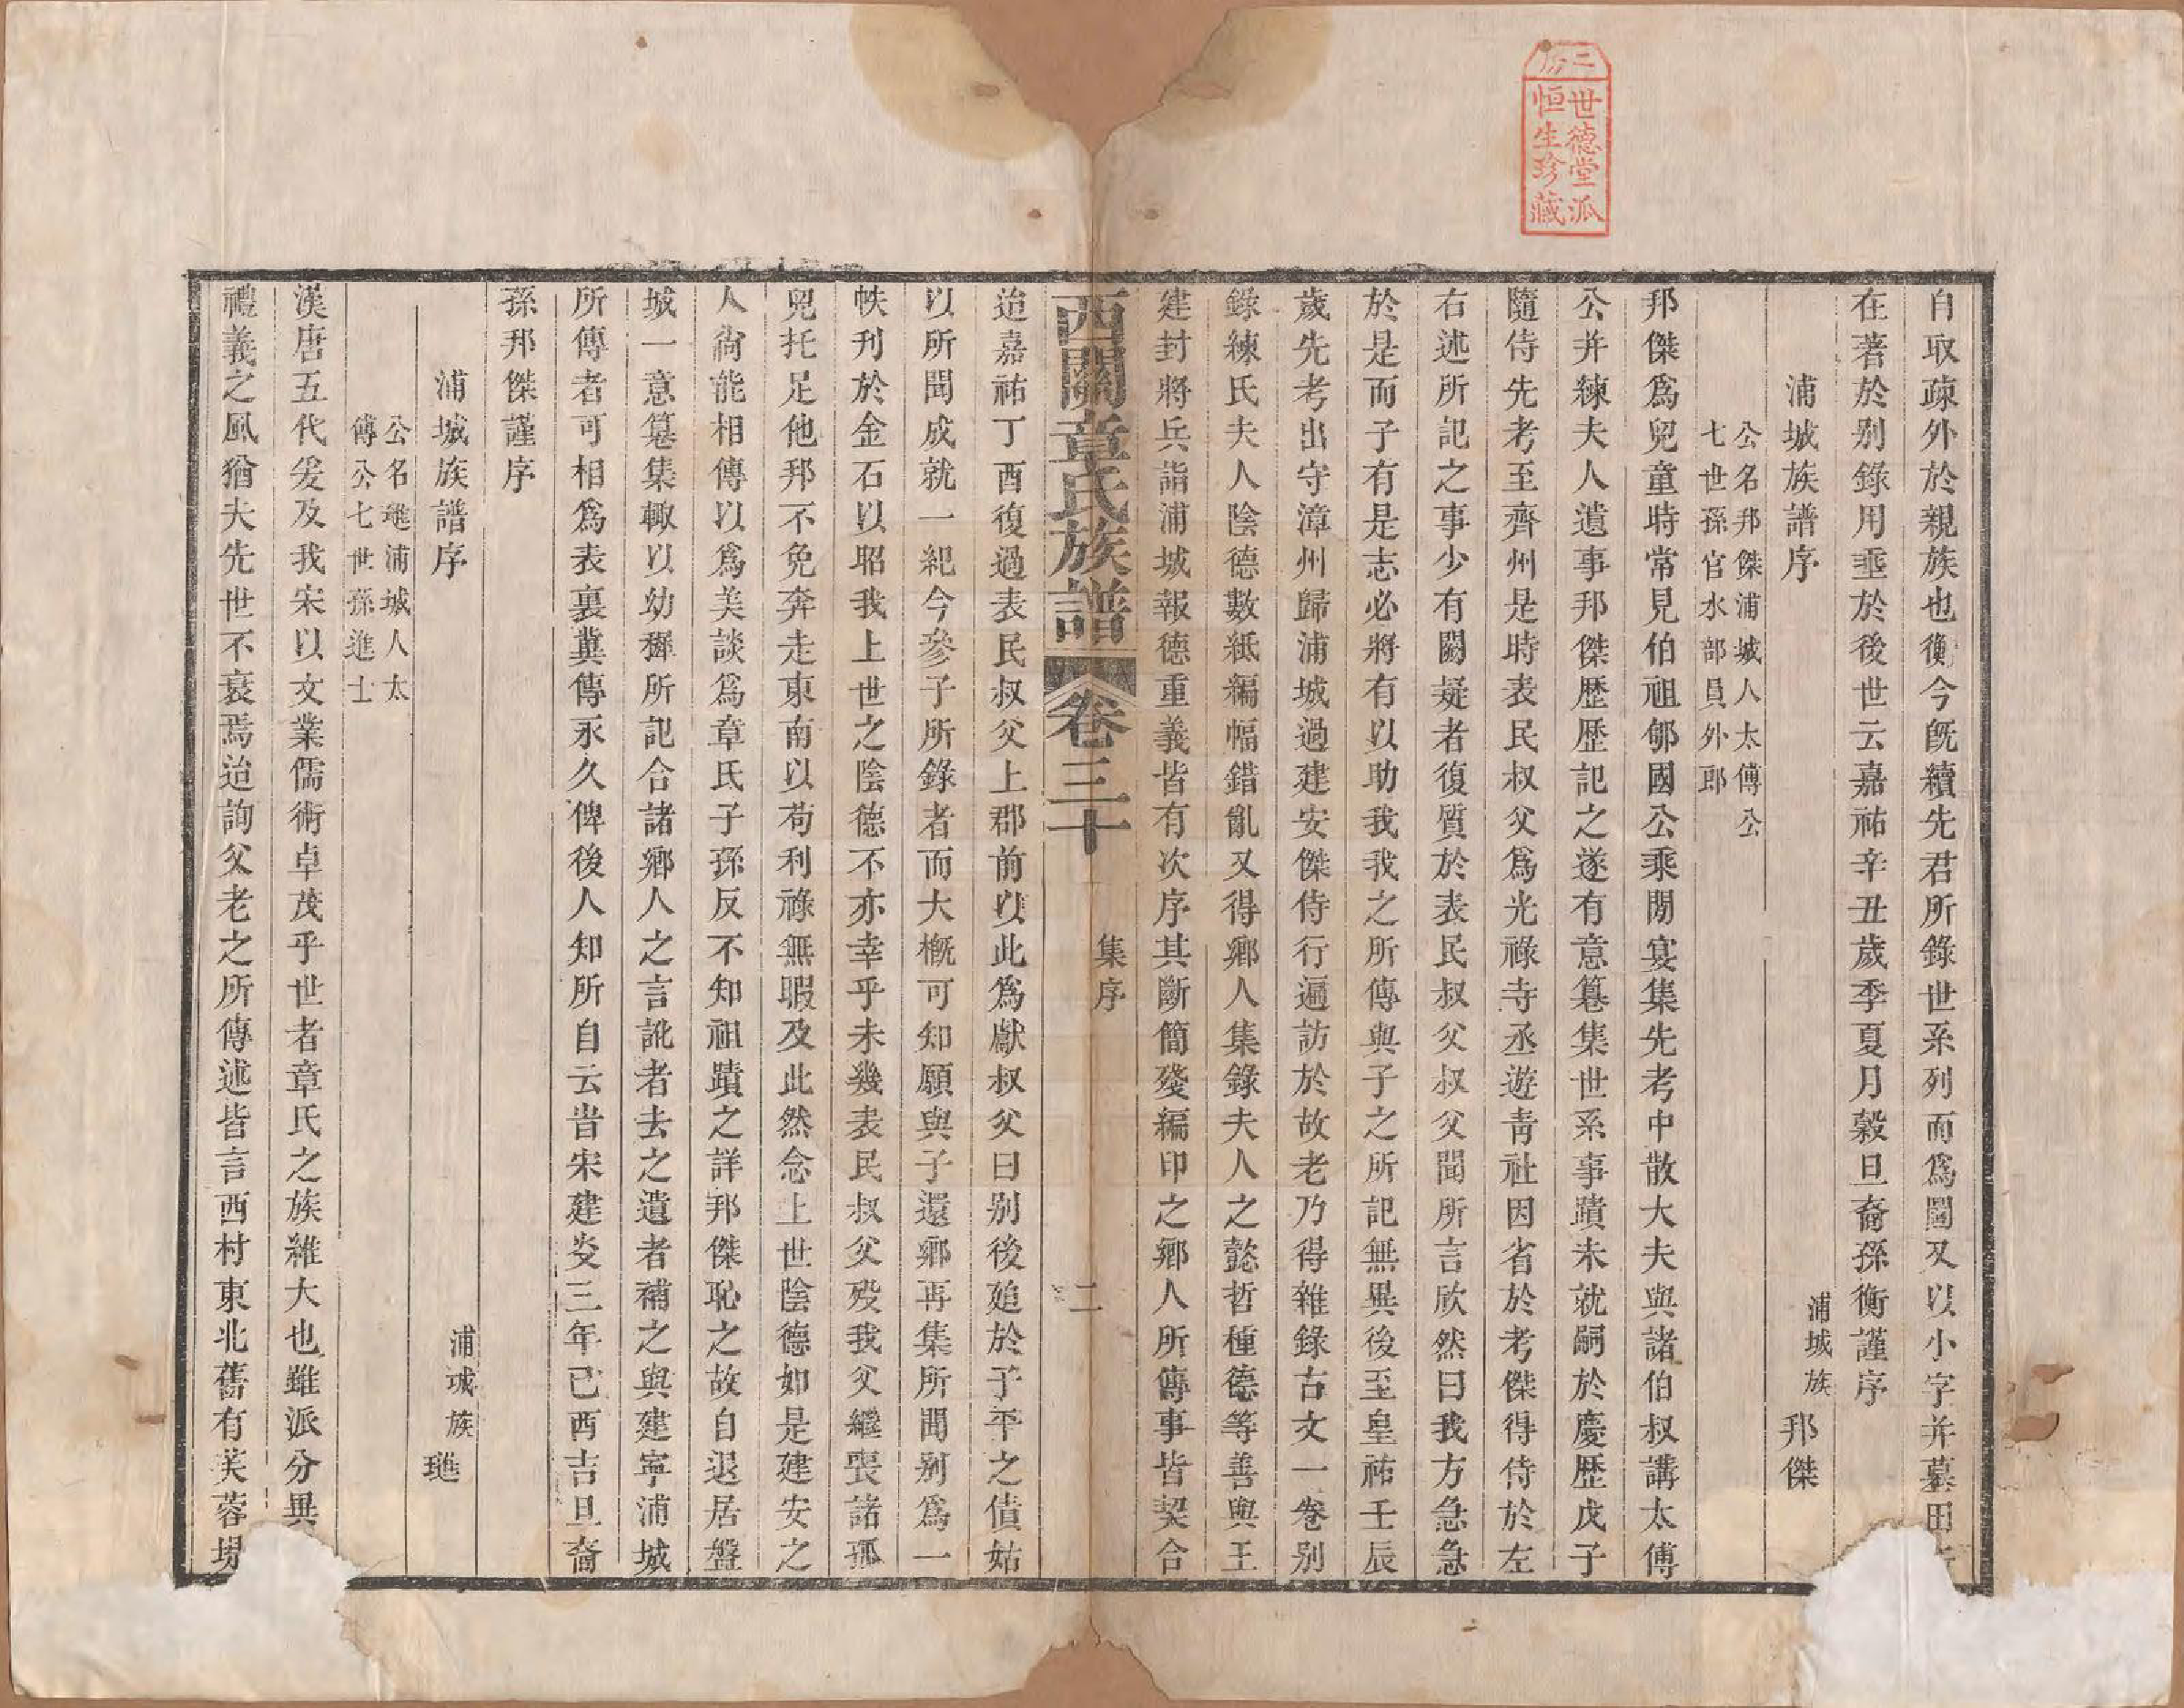 二房
世德堂派
恒生珍藏
自取疎外於親族也衡今旣續先君所錄世系列而爲圖又以小字并墓田
在著於别錄用垂於後世云嘉祐辛丑歲季夏月穀旦裔孫衡謹序
浦城族譜序 浦城族 邦傑
公名邦傑浦城人太傅公
七世孫官水部員外郎
邦傑爲兒童時常見伯祖郇國公乘閒宴集先考中散大夫與諸伯叔講太傅
公并練夫人遺事邦傑歷歷記之遂有意纂集世系事蹟未就嗣於慶歷戊子
隨侍先考至齊州是時表民叔父爲光祿寺丞遊青社因省於考傑得侍於左
右述所記之事少有闕疑者復質於表民叔父叔父聞所言欣然曰我方急急
於是而子有是志必將有以助我我之所傳與子之所記無異後至皇祐壬辰
歲先考出守漳州歸浦城過建安傑侍行遍訪於故老乃得雜錄古文一卷别
錄練氏夫人陰德數紙編幅錯亂又得鄉人集錄夫人之懿哲種德等善與王
建封將兵詣浦城報德重義皆有次序其斷簡殘編印之鄉人所傳事皆契合
西關章氏族譜 卷三十 集序 二
迨嘉祐丁酉復過表民叔父上郡前以此爲獻叔父曰别後廹於予平之債姑
以所聞成就一紀今參子所錄者而大槪可知願與子還鄉再集所聞别爲一
帙刋於金石以昭我上世之陰德不亦幸乎未幾表民叔父殁我父繼喪諸孤
兒托足他邦不免奔走東南以苟利祿無暇及此然念上世陰德如是建安之
人尙能相傳以爲美談爲章氏子孫反不知祖蹟之詳邦傑恥之故自退居盤
城一意纂集輙以幼穉所記合諸鄉人之言訛者去之遺者補之與建寧浦城
所傳者可相爲表裏冀傳永久俾後人知所自云昔宋建炎三年已酉吉旦裔
孫邦傑謹序
浦城族譜序 浦城族 琞
公名琞浦城人太
傅公七世孫進士
漢唐五代爰及我宋以文業儒術卓茂乎世者章氏之族維大也雖派分異
禮義之風猶夫先世不衰焉迨詢父老之所傳述皆言西村東北舊有芙蓉場